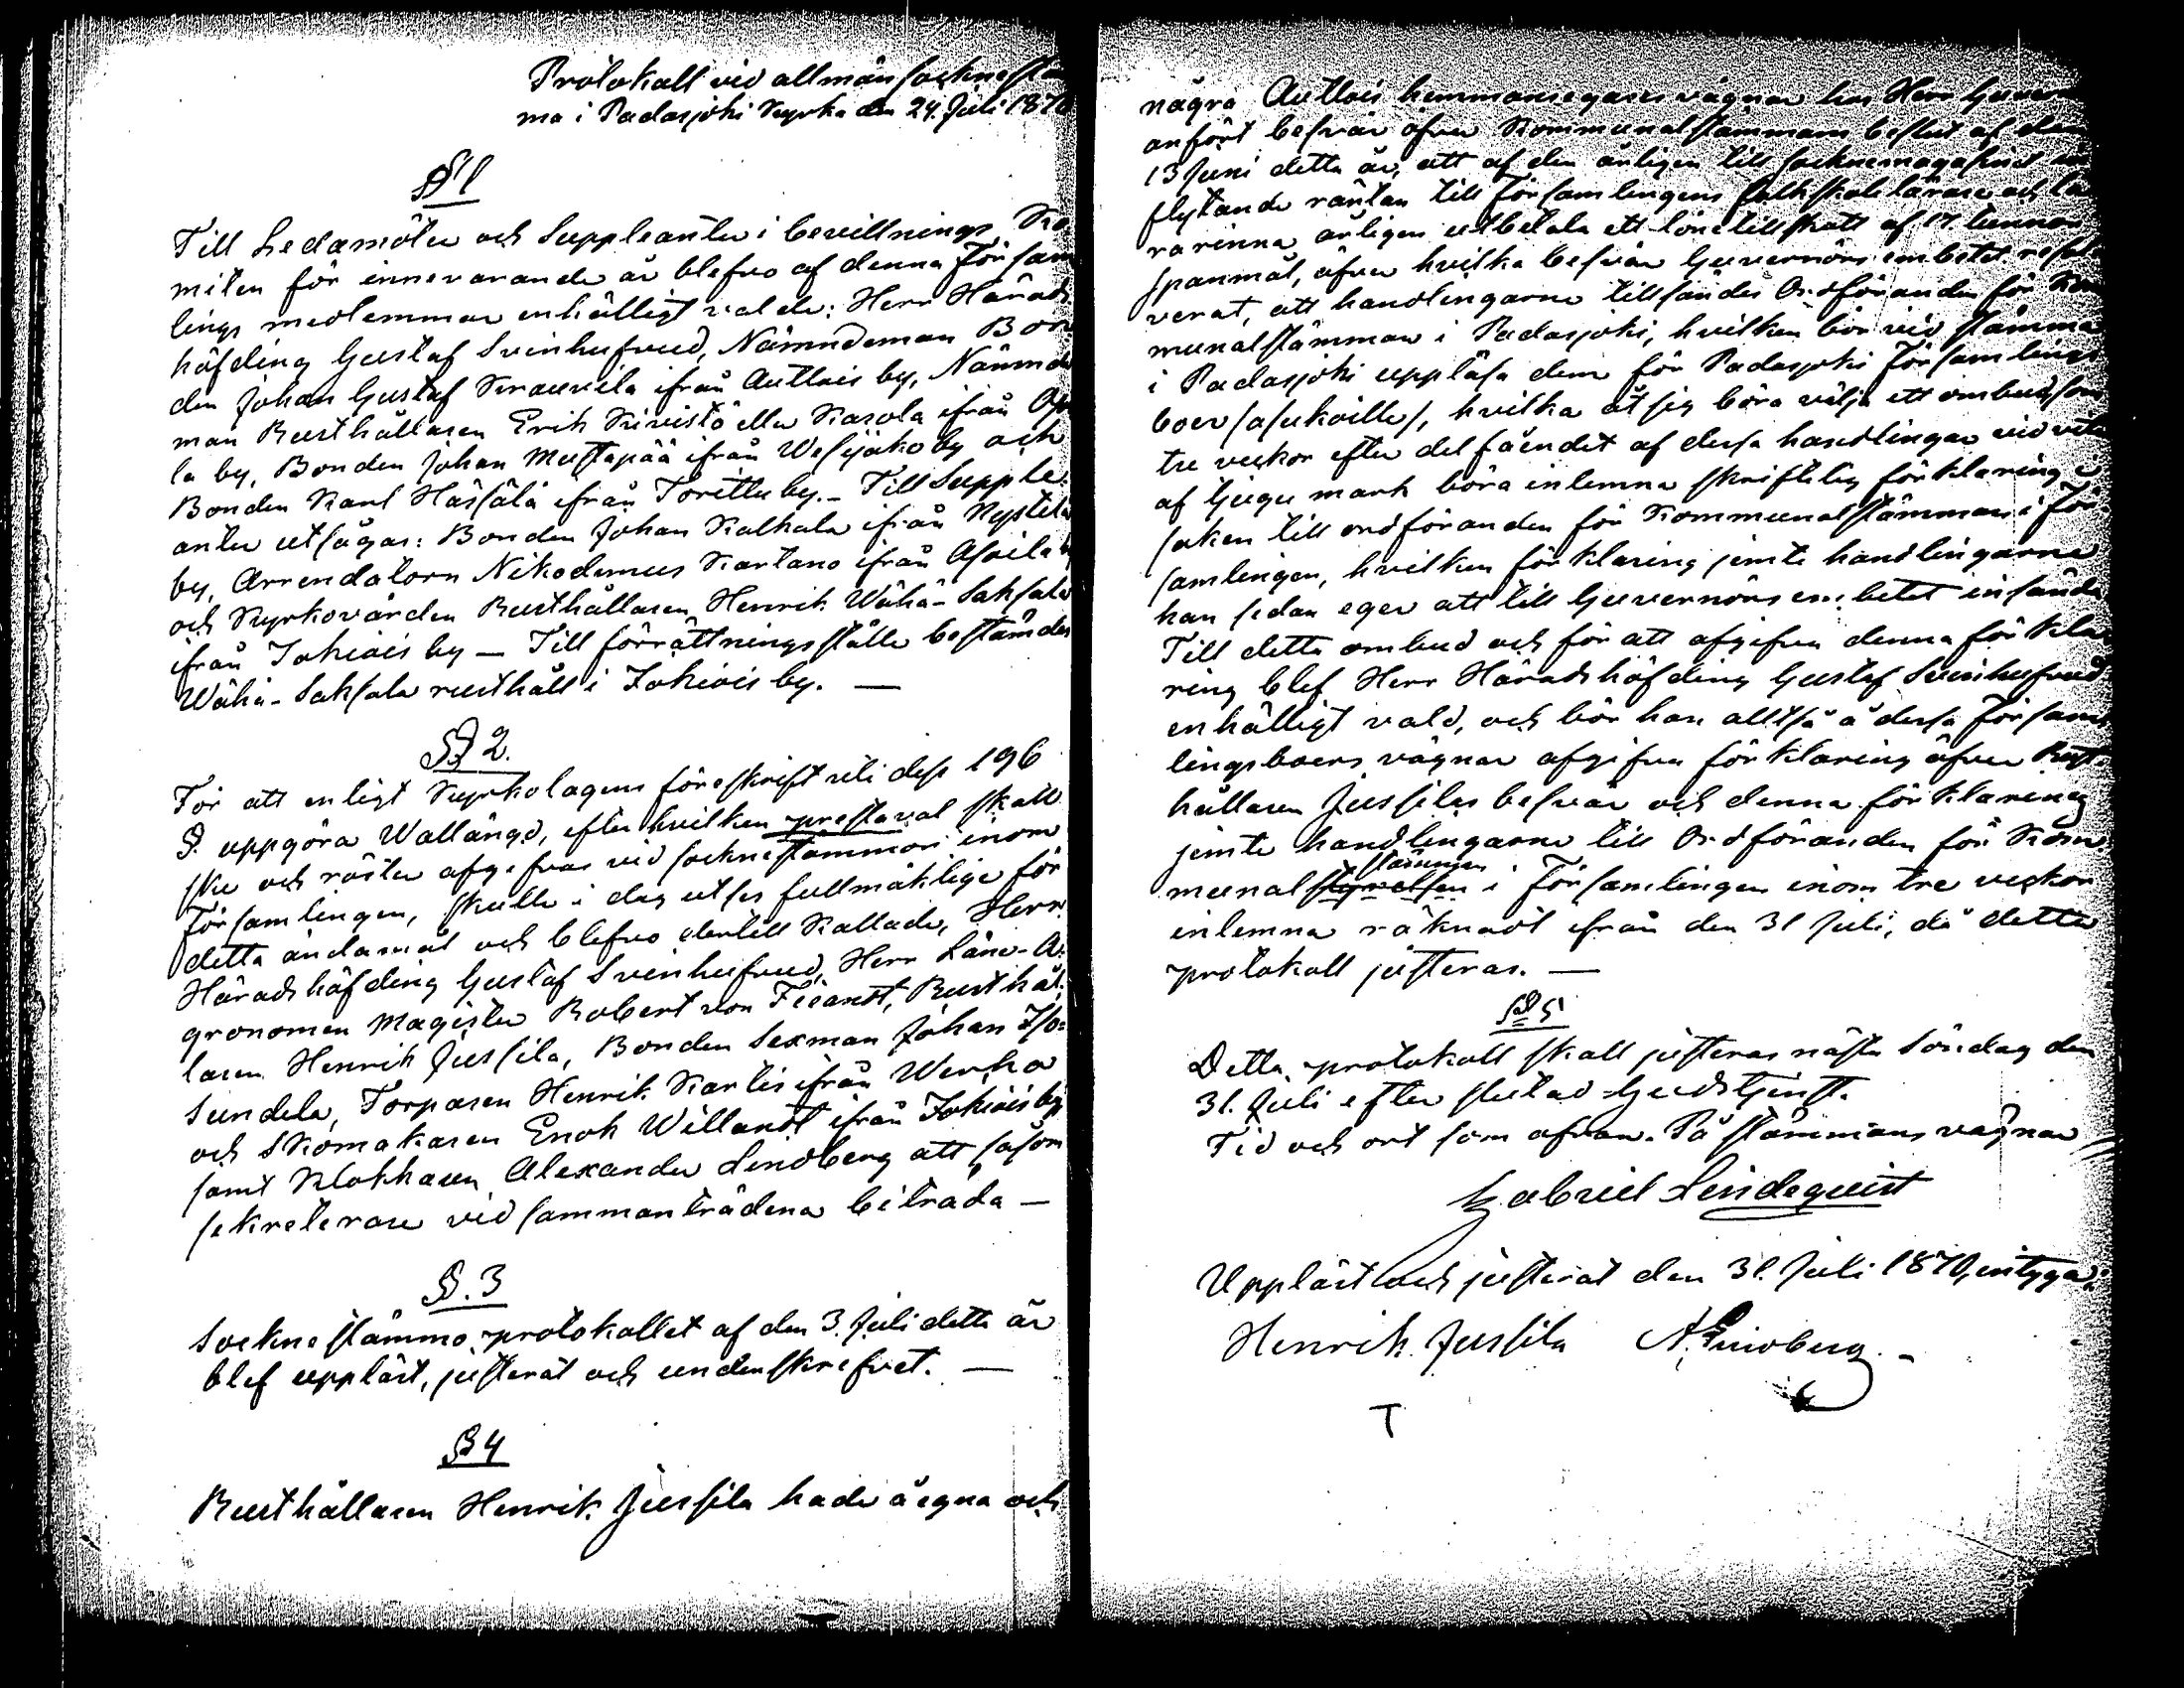 Protokoll vid allmän socknestäm
ma i Padasjoki Kyrka den 24. Juli 1870
§ 1
Till Ledamöter och Suppleanter i bevillnings Ko
miten för innevarande år blefvo af denna Försam
lings medlemmar enhälligt valde: Herr Härads
höfding Gustaf Svinhufvud, Nämndeman Bon
den Johan Gustaf Krauvila ifrån Auttois by, Nämnde
man Rusthållaren Erik Kivistö eller Karola ifrån
la by, Bonden Johan Mustapää ifrån Wesijako by och
Bonden Karl Hassala ifrån Torittu by. – Till Supple
anter utsågas: Bonden Johan Kalhala ifrån Nystölä
by, Arrendatorn Nikodemus Kartano ifrån Arrila
och Kyrkovärden Rusthållaren Henrik Wähä-Saksala
ifrån Jokiois by – Till förrättningsställe bestämdes
Wähä-Saksala rusthåll i Jokiois by. –
§ 2.
För att enligt Kyrkolagens föreskrift uti dess 196
§. uppgöra Wallängd, efter hvilken prestaval skall
ske och röster afgifvas vid socknestämmor inom
Församlingen, skulle i dag utses fullmäktige för
detta ändamål och blefvo dertill kallade, Herr
Häradshöfding Gustaf Svinhufvud, Herr Läns-A-
gronomen Magister Robert von Fieandt, Rusthål-
laren Henrik Jussila, Bonden Sexman Johan Iso-
Sundela, Torparen Henrik Kartis ifrån Werho
och Skomakaren Enok Willandt ifrån Jokiois by,
samt Klokkaren Alexander Lindberg att såsom
sekreterare vid sammanträdena biträda –
§. 3
Socknestämmo protokollet af den 3. Juli detta år
blef uppläst, justerat och underskrefvet. –
§ 4
Rusthållaren Henrik Jussila hade å egna och
några Auttois hemmansegares vägnar hos Herr Guvern
anfört besvär öfver Kommunalstämmans beslut af den
13 Juni detta år, att af den årligen till socknemagasinet in
flytande räntan till Församlingens folkskole lärare och lä
rarinna årligen utbetala ett lönetillskott af 17. tunnor
spanmål, öfver hvilka besvär Guvernörs embetet resol
verat, att handlingarne tillsändes Ordföranden för Kom
munalstämman i Padasjoki, hvilken bör vid stämma
i Padasjoki uppläsa dem för Padasjoki Församlings
boer /asukoille/, hvilka åt sig böra välja ett ombud, som
tre veckor efter delfåendet af dessa handlingar vid vite
af tjugu mark böra inlemna skriftelig förklaring i
saken till ordföranden för Kommunalstämman i För-
samlingen, hvilken förklaring jemte handlingarne
han sedan eger att till Guvernörs embetet insända
Till detta ombud och för att afgifva denna förkla
ring blef Herr Häradshöfding Gustaf Svinhufvud
enhälligt vald, och bör han alltså å dessa Försam
lingsboers vägnar afgifva förklaring öfver Rust
hållaren Jussilas besvär och denna förklaring
jemte handlingarne till Ordföranden för Kom
stämman
munalstyrelsen i Församlingen inom tre veckor
inlemna räknadt ifrån den 31 Juli, då detta
protokoll justeras. –
§ 5
Detta protokoll skall justeras nästa Söndag den
31. Juli efter slutad Gudstjenst.
Tid och ort som ofvan. På stämmans vägnar
Gabriel Lindequist
Uppläst och justerat den 31. Juli 1870, intyga:
Henrik Jussila A. Lindberg. –
T